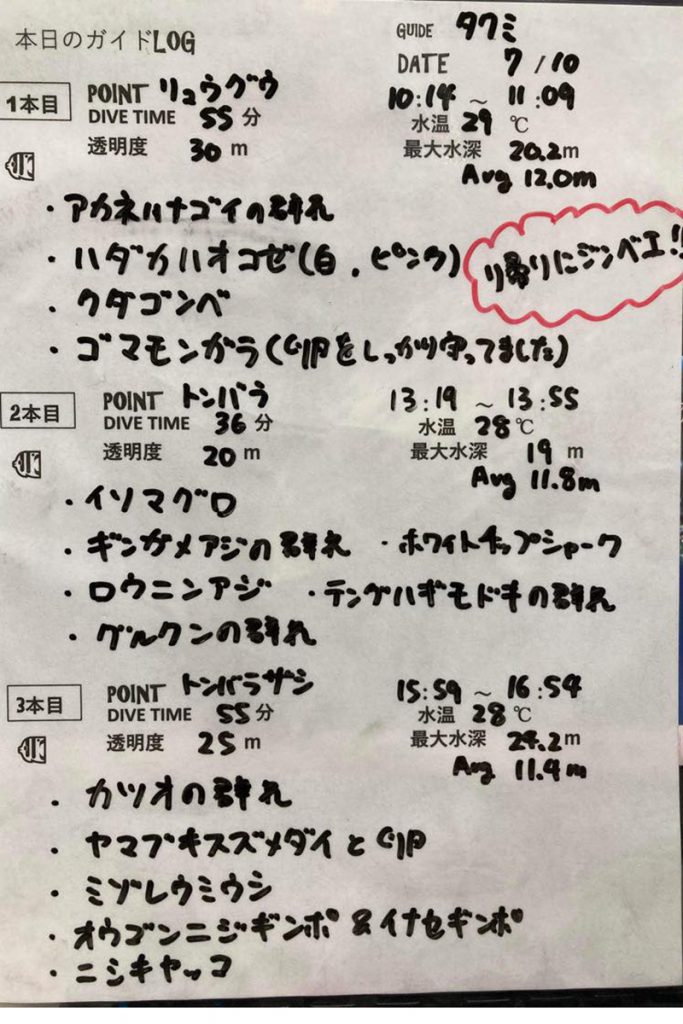 本日のガイドLOG
GUIDE タクミ
DATE 7/10
1本目 POINT リュウグウ 10:14 ~ 11:09
DIVE TIME 55分 水温 29℃
透明度 30m 最大水深 20.2m
Avg 12.0m
・アカネハナゴイの群れ
・ハダカハオコゼ(白、ピンク)
帰りにジンベエ!!
・クダゴンベ
・ゴマモンガラ(卵をしっかり守ってました)
2本目 POINT トンバラ 13:19 ~ 13:55
DIVE TIME 36分 水温 28℃
透明度 20m 最大水深 19m
Avg 11.8m
・イソマグロ
・ギンガメアジの群れ ・ホワイトチップシャーク
・ロウニンアジ ・テングハギモドキの群れ
・グルクンの群れ
3本目 POINT トンバラザシ 15:59 ~ 16:54
DIVE TIME 55分 水温 28℃
透明度 25m 最大水深 24.2m
Avg 11.4m
・カツオの群れ
・ヤマブキスズメダイと卵
・ミゾレウミウシ
・オウゴンニジギンポ&イナセギンポ
・ニシキヤッコ